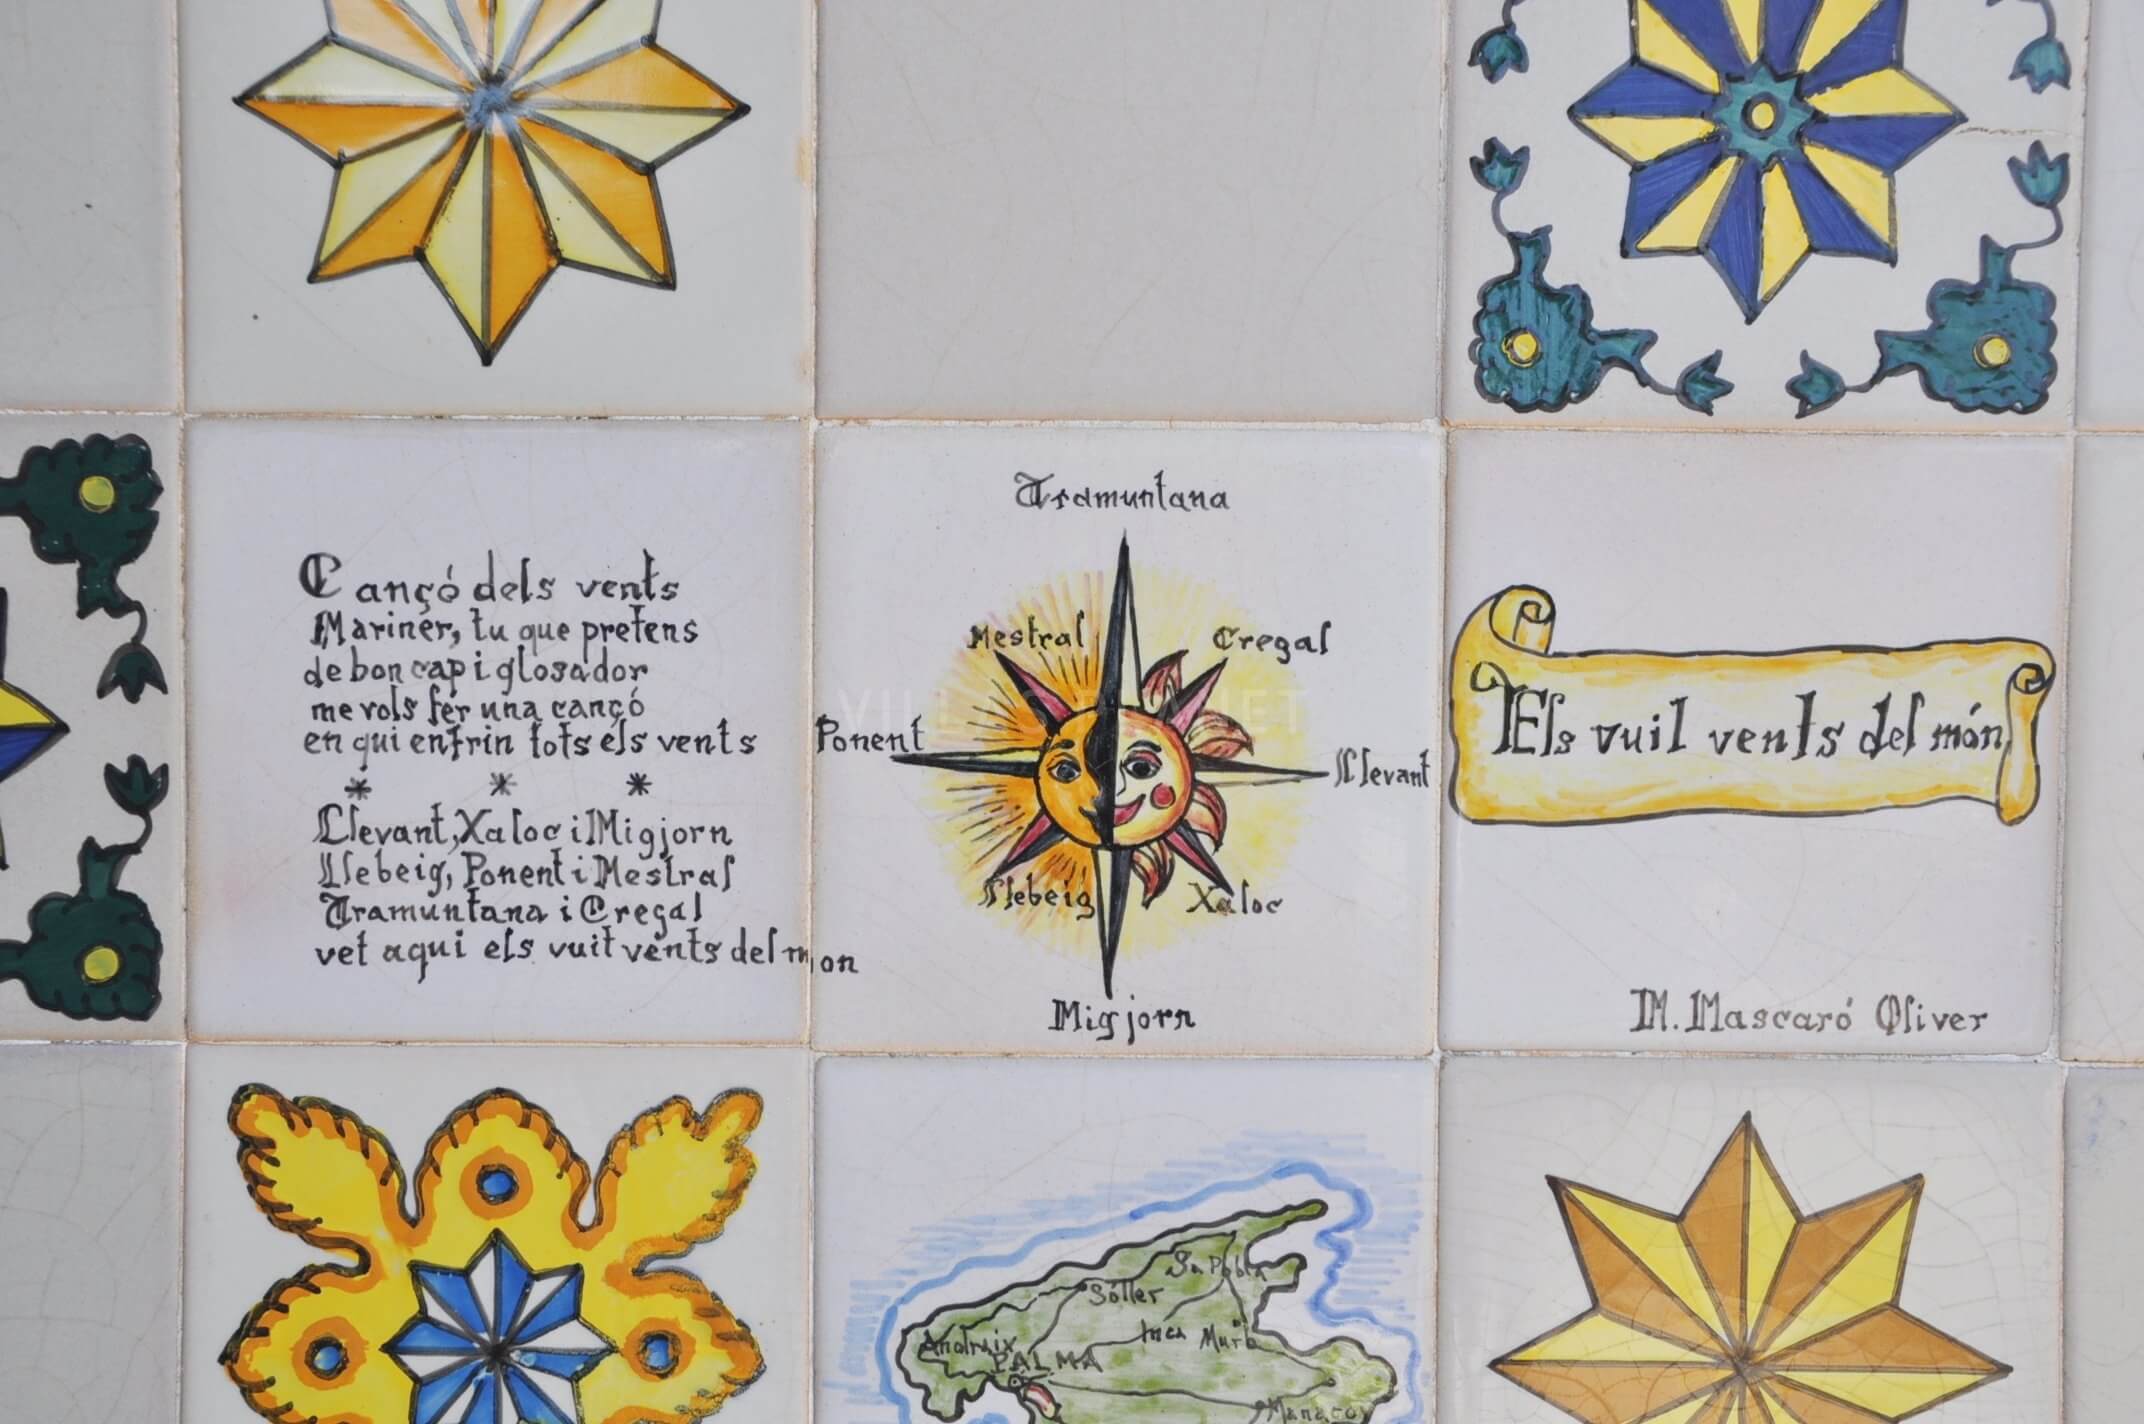 Cançó dels vents
Mariner, tu que pretens
de bon cap i glosador
me vols fer una cançó
en qui entrin tots els vents
* * *
Llevant, Xaloc i Migjorn
Llebeig, Ponent i Mestral
Tramuntana i Gregal
vet aqui els vuit vents del mon
Tramuntana
Mestral
Gregal
Ponent
Llevant
Llebeig
Xaloc
Migjorn
Els vuit vents del món
M. Mascaró Oliver
VILLAS PLANET
Sa Pobla
Sóller
Inca
Muro
Andraix
PALMA
Manacor